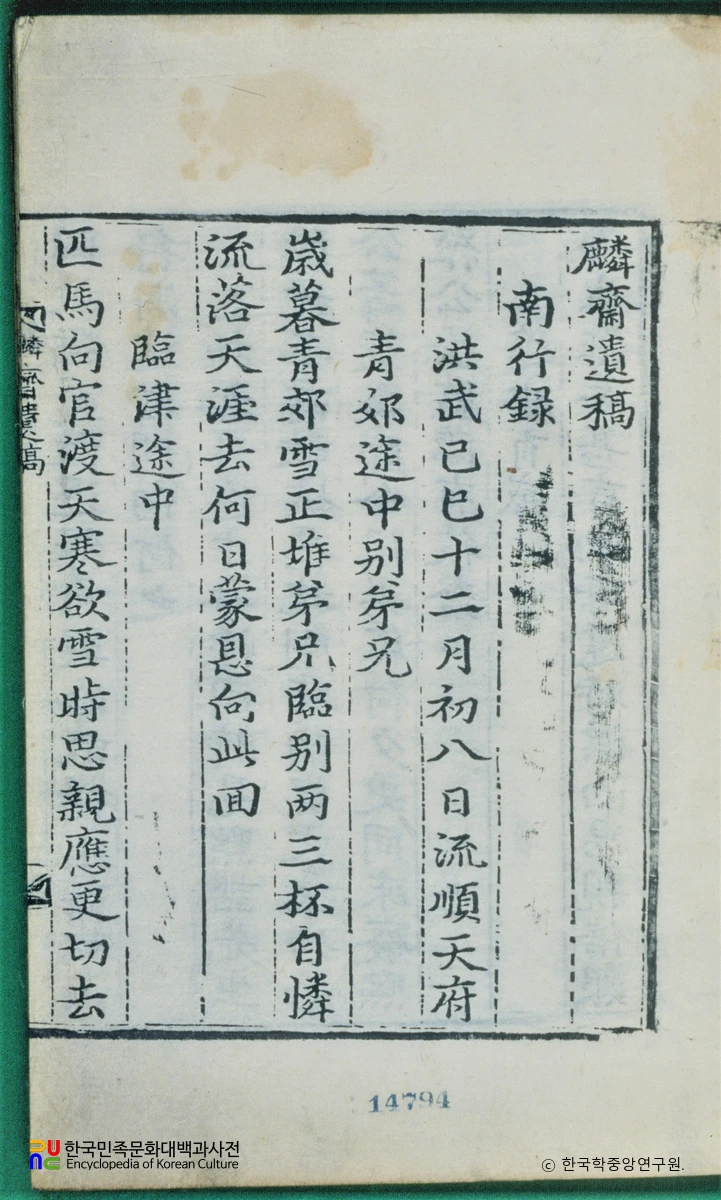 麟齋遺稿
南行録
洪武己巳十二月初八日流順天府
青郊途中别㐧兄
歳暮青郊雪正堆㐧兄臨别两三杯自憐
流落天涯去何日蒙恩向此回
臨津途中
匹馬向官渡天寒欲雪時思親應更切去
麟齋遺稿
14794
한국민족문화대백과사전
Encyclopedia of Korean Culture
ⓒ 한국학중앙연구원.